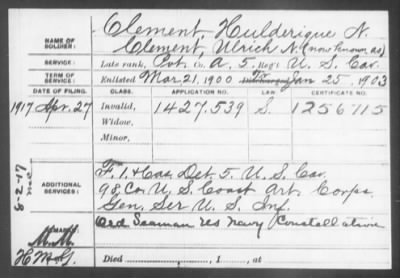 NAME OF SOLDIER: Clement, Hulderique N.
Clement, Ulrich N. (now known as)
SERVICE: Late rank, Pvt. Co. A, 5, Reg't U. S. Cav.
TERM OF SERVICE: Enlisted Mar. 21, 1900 Jan 25, 1903
DATE OF FILING. CLASS. APPLICATION NO. LAW CERTIFICATE NO.
1917 Apr. 27 Invalid, 1427.539 S. 1256715
Widow,
Minor,
8-2-17
ADDITIONAL SERVICES: F. 1. & Cas. Det. 5. U. S. Cav.
98 Co. U. S. Coast Art. Corps.
Gen. Ser. U. S. Inf.
Ord Seaman US Navy Constellation
REMARKS:
M.M.
Died , 1 , at